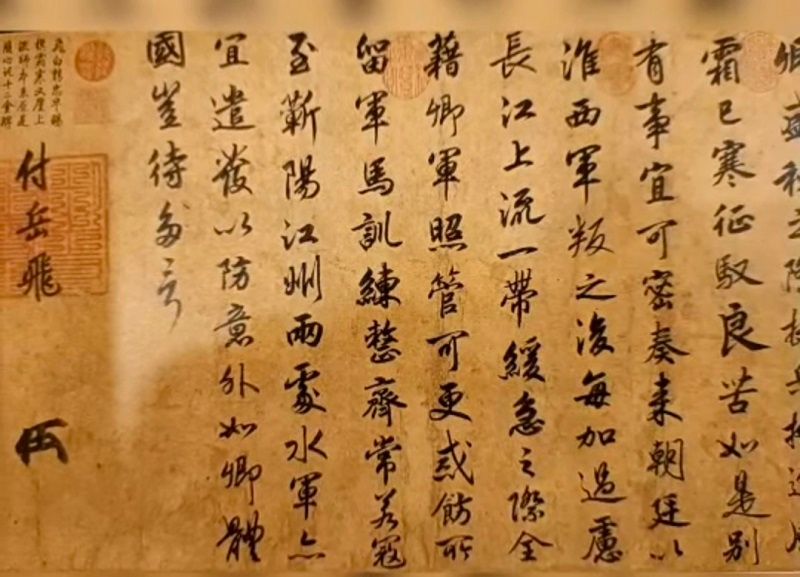 卿盛秋之際提兵按邊風
霜已寒征馭良苦如是別
有事宜可密奏来朝廷以
淮西軍叛之後每加過慮
長江上流一帶緩急之際全
藉卿軍照管可更戒飭所
留軍馬訓練整齊常若寇
至蘄陽江州兩處水軍亦
宜遣發以防意外如卿體
國豈待多言
付岳飛